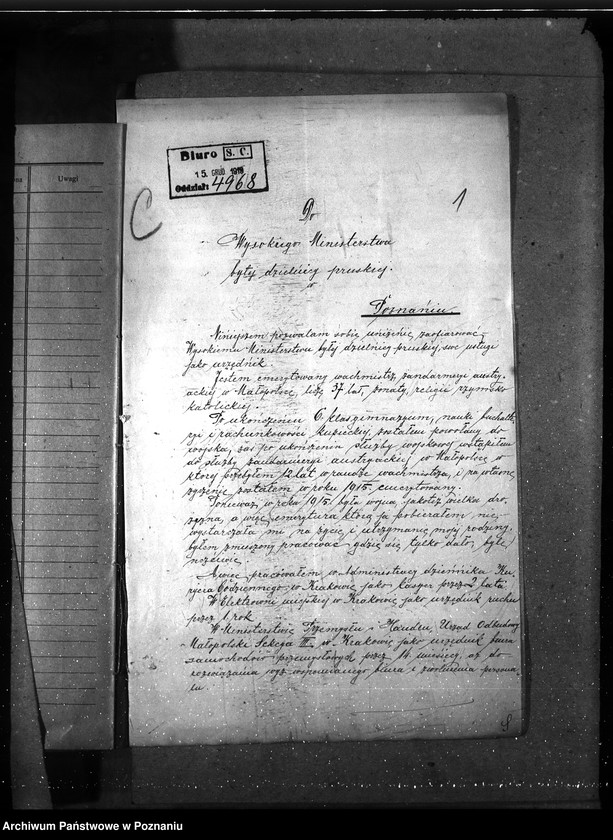 na
Uwagi
Biuro S. C.
15 GRUD 1919
Oddział: 4968
C
1
Do
Wysokiego Ministerstwa
byłej dzielnicy pruskiej.
w
Poznaniu.
Niniejszem pozwalam sobie uniżenie zaofiarować
Wysokiemu Ministerstwu byłej dzielnicy pruskiej, swe usługi
jako urzędnik.
Jestem emerytowany wachmistrz, żandarmeryi austry-
ackiej w Małopolsce, liczę 37 lat, żonaty, religii rzymsko
katolickiej.
Po ukończeniu 6 klas gimnazyum, nauki buchalte-
ryi i rachunkowości kupieckiej, zostałem powołany do
wojska, zaś po ukończeniu służby wojskowej wstąpiłem
do służby żandarmeryi austryackiej w Małopolsce w
której przebyłem 12 lat w randze wachmistrza, i na własne
życzenie zostałem w roku 1915. emerytowany.
Ponieważ w roku 1915. była wojna, jakoteż wielka dro-
żyzna, a więc emerytura którą ja pobierałem nie
wystarczała mi, na życie i utrzymanie mojej rodziny,
byłem zmuszony pracować gdzie się tylko dało, byle
uczciwie.
A więc pracowałem w Administracyi dziennika Ku-
ryera Codziennego w Krakowie jako kasyer przez 2 lata
W Elektrowni miejskiej w Krakowie jako urzędnik ruchu
przez 1 rok.
W Ministerstwie Przemysłu i Handlu, Urząd Odbudowy
Małopolski Sekcja III. w Krakowie jako urzędnik biura
samochodów przemysłowych przez 14 miesięcy, aż do
rozwiązania wyż wspomnianego biura i zwolnienia persona-
lu.
Archiwum Państwowe w Poznaniu